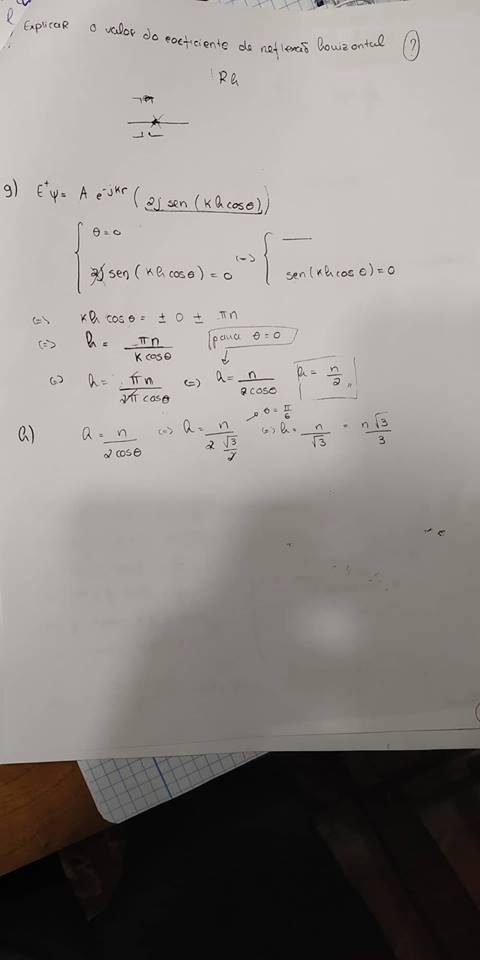 Explicar o valor do coeficiente de reflexão horizontal (?)
Rh
g) E⁺ψ = A e^-jkr (2j sen (Kh cosθ))
{ θ = 0
2j sen (Kh cosθ) = 0 (=) { —— sen (Kh cosθ) = 0
(=) Kh cosθ = ± 0 ± πn
(=) h = πn / K cosθ para θ = 0
(=) h = πn / 2π cosθ (=) h = n / 2cosθ h = n/2 //
h) h = n / 2cosθ (=) h = n / 2 √3/2 θ = π/6 (=) h = n/√3 = n√3/3